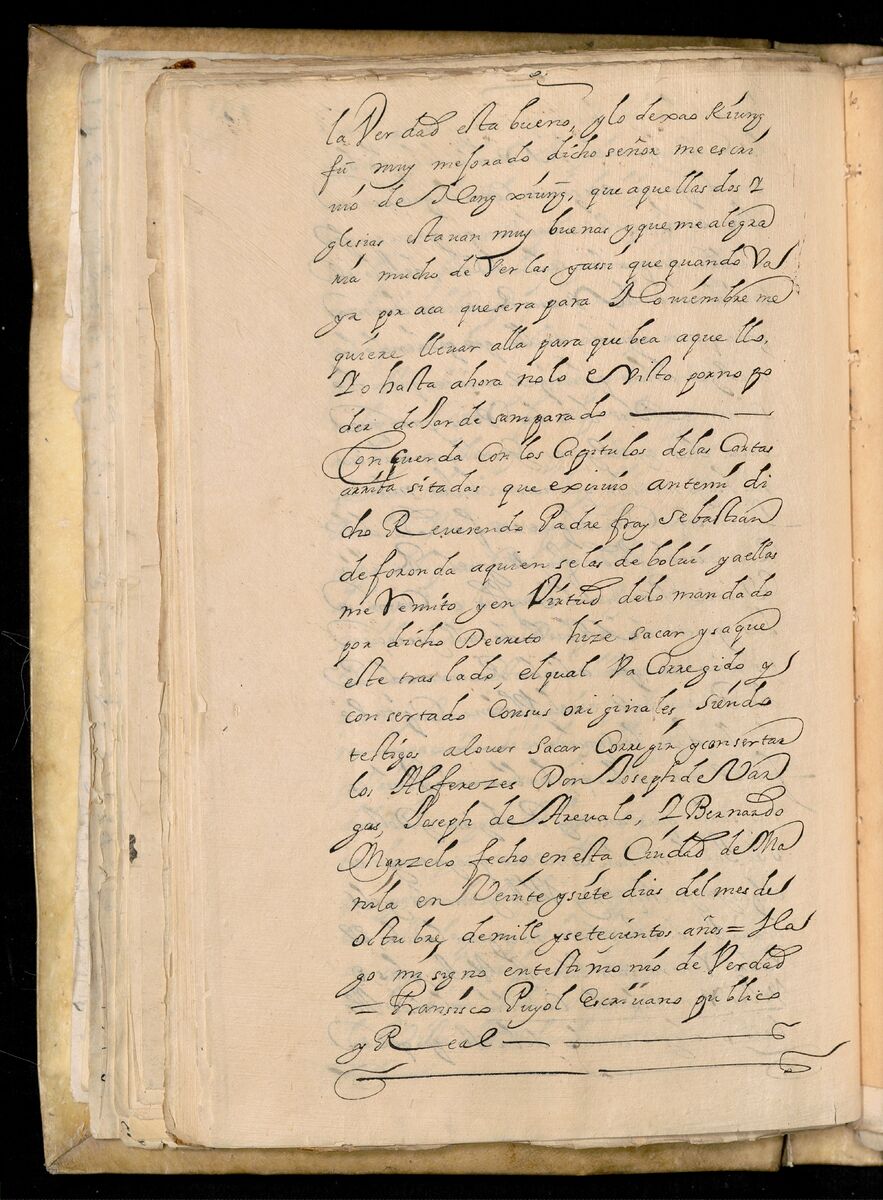 la Verdad esta bueno, y lo dexao Kiung
fũ muy mejorado dicho señor me escri
uió de Nang xiung̃, que aquellas dos I
glesias estauan muy buenas y que me alegra
ria mucho de Ver las y assi que quando Va
ya por aca que sera para Nouiembre me
quiere lleuar alla para que bea aquello.
Yo hasta ahora no lo e Visto por no po
der dejar desamparado
Concuerda Con los Capitulos delas Cartas
arriba sitadas que exiuió antemi di
cho Reuerendo Padre fray Sebastian
de foronda aquien selas debolui y aellas
me Remito y en Virtud delo mandado
por dicho Decreto hize sacar y saque
este traslado, el qual Va Corregido y
consertado Consus originales siendo
testigos alouer sacar Corregir y consertar
los Alferezes Don Joseph de Var
gas, Joseph de Areualo, I Bernardo
Marzelo fecho en esta Ciudad de Ma
nila en Veinte y siete dias del mes de
octubre, de mill y setecientos años = Ha
go mi signo entestimonio de Verdad
= Fransisco Pujol Escriuano publico
y Real